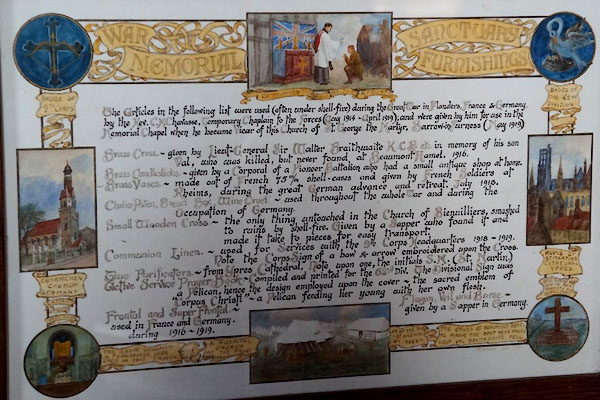 WAR MEMORIAL
SANCTUARY FURNISHINGS
BADGE OF
9TH CORPS
BADGE OF
THE 62ND
DIVISION
The Articles in the following list were used (often under shell-fire) during the Great War in Flanders, France & Germany,
by the Rev. C.M. Chavasse, Temporary Chaplain to the Forces (Aug 1914 - April 1919), and were given by him for use in the
Memorial Chapel when he became Vicar of this Church of St George the Martyr, Barrow-in-Furness (May 1919)
Brass Cross - given by Lieut-General Sir Walter Braithwaite K.C.B etc. in memory of his son
Val, who was killed, but never found at Beaumont Hamel. 1916.
Brass Candlesticks - given by a Corporal of a Pioneer Battalion who had a small antique shop at home.
Brass Vases - made out of French 75 m/m shell-cases and given by French Soldiers at
Rheims, during the great German advance and retreat. July 1918.
Chalice, Paten, Bread Box, Wine Cruet - used throughout the whole War and during the
Occupation of Germany.
Small Wooden Cross - the only thing untouched in the Church of Bienvilliers, smashed
to ruins by shell-fire. Given by a Sapper who found it and
made it take to pieces for easy transport.
Communion Linen - used for Services with the 9th Corps Headquarters 1918 - 1919.
Note the Corps Sign of a bow & arrow embroidered upon the Cross.
Two Purificators - from Ypres Cathedral. Note upon one, the initials S.M. (St. Martin.)
Active Service Prayer Book - Compiled and printed for the 62nd Div. The Divisional Sign was
a Pelican, hence the design employed upon the cover - the sacred emblem of
"Corpus Christi" - a Pelican feeding her young with her own flesh.
Frontal and Super Frontal -
used in France and Germany.
during 1916 - 1919.
Flagon, Veil and Burse -
given by a Sapper in Germany.
CHURCH
GERMANY
RUINS
CATHEDRAL
YPRES
HOSPITAL